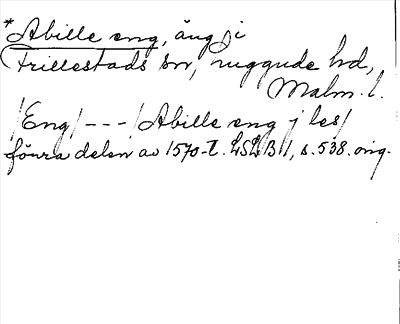 *Abille eng, äng i
Frillestads sn, Luggude hd,
Malm. l.
/Eng/ --- /Abille eng j les/
förra delen av 1570-t. LSLB 1, s. 538. orig.